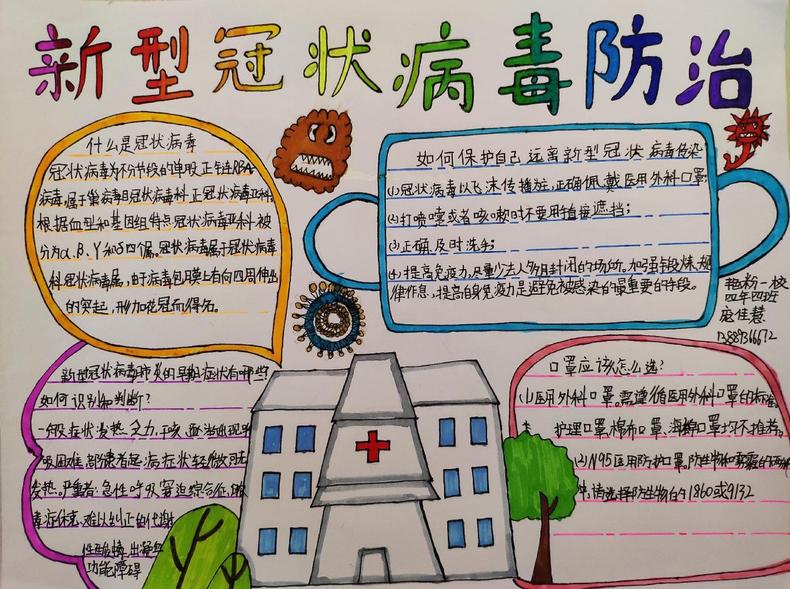 新型冠状病毒防治
什么是冠状病毒
冠状病毒为不分节段的单股正链RNA
病毒,属于巢病毒目冠状病毒科正冠状病毒亚科,
根据血型和基因组特点冠状病毒亚科被
分为α、β、γ和δ四个属。冠状病毒属于冠状病毒
科冠状病毒属,由于病毒包膜上有向四周伸出
的突起,形如花冠而得名。
如何保护自己远离新型冠状病毒传染
(1)冠状病毒以飞沫传播为主,正确佩戴医用外科口罩;
(2)打喷嚏或者咳嗽时不要用手直接遮挡;
(3)正确、及时洗手;
(4)提高免疫力,尽量少去人多且封闭的场所。加强锻炼、规
律作息,提高自身免疫力是避免被感染的最重要的手段。
一校
四年四班
新型冠状病毒肺炎的早期症状有哪些?
如何识别和判断?
一般症状发热、乏力、干咳、逐渐出现呼
吸困难,部分患者起病症状轻微,可无
发热。严重者:急性呼吸窘迫综合征,脓
毒症休克,难以纠正的代谢
性酸中毒,出凝血
功能障碍
口罩应该怎么选?
(1)医用外科口罩。需遵循医用外科口罩的标准。
护理口罩,棉布口罩,海绵口罩均不推荐。
(2)N95医用防护口罩,防生物和雾霾的
请选择防生物的1860或9132